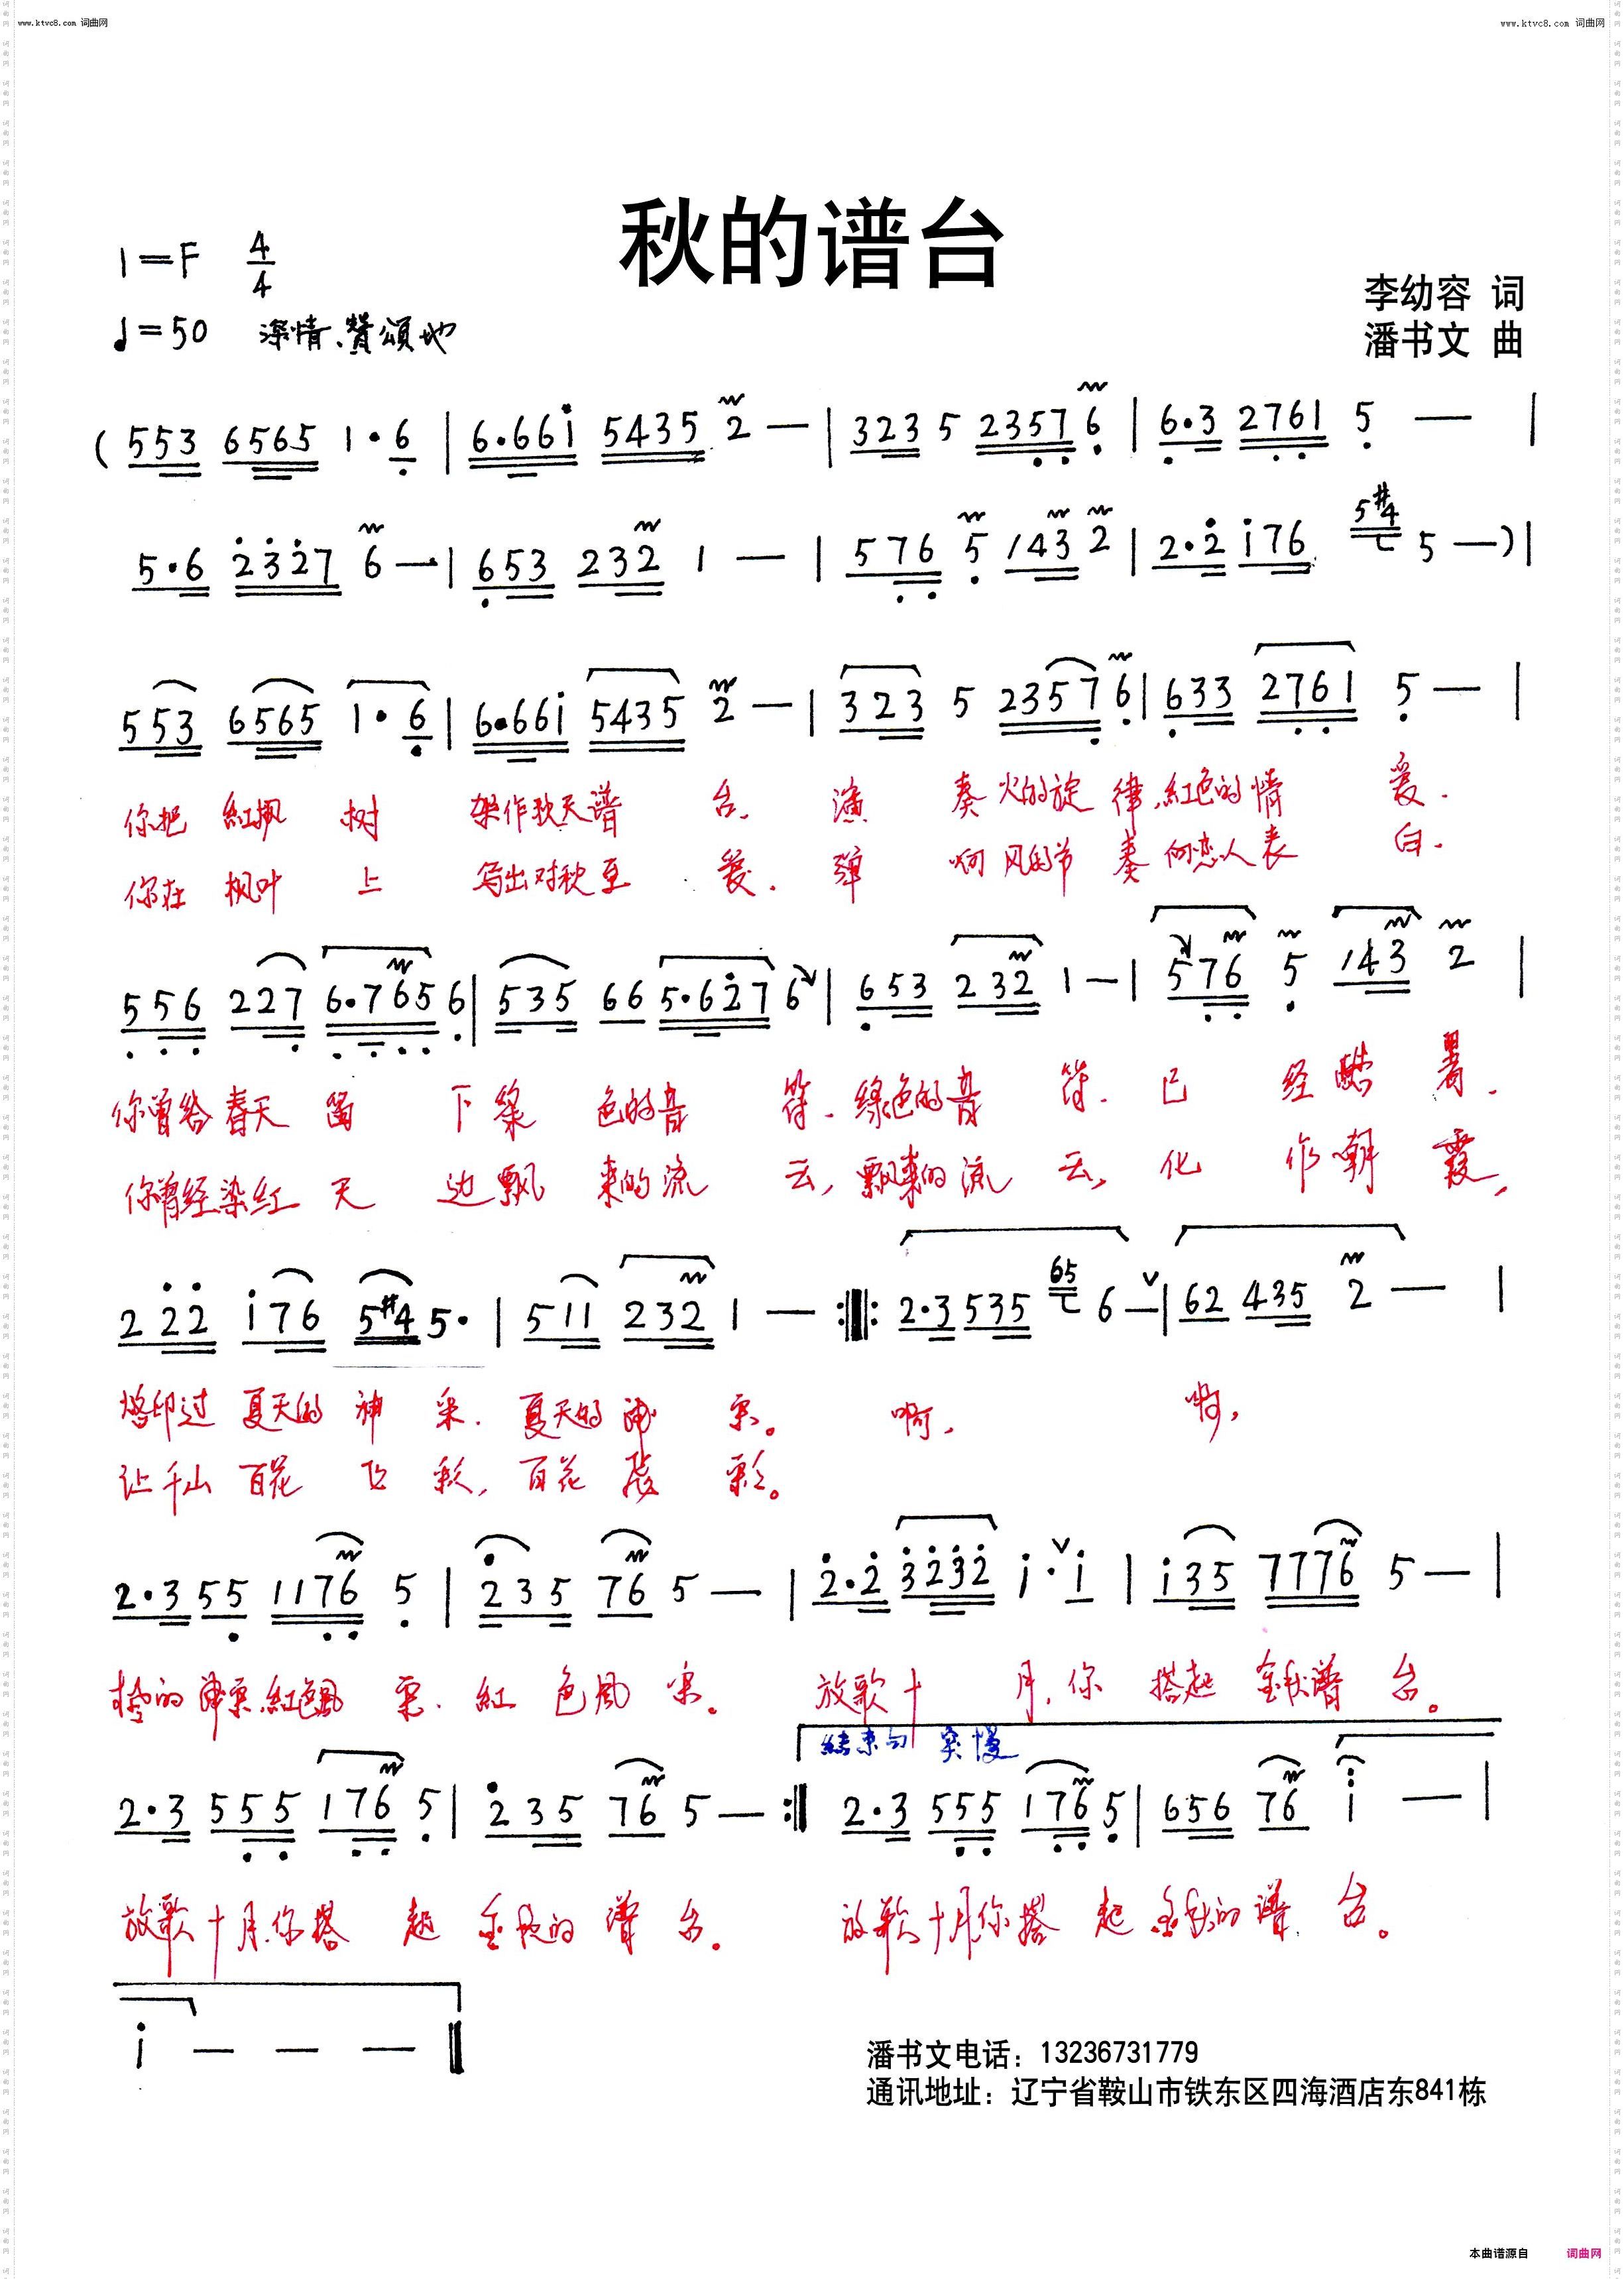 www.ktvc8.com 词曲网
www.ktvc8.com 词曲网
秋的谱台
1=F 4/4
李幼容 词
♩=50 深情、赞颂地
潘书文 曲
(553 6565 1·6 | 6·66i 5435 2 — | 323 5 2357 6 | 6·3 2761 5 — |
5·6 2327 6 — | 653 232 1 — | 576 5 143 2 | 2·2 i76 5#4 5 —)|
553 6565 1·6 | 6·66i 5435 2 — | 323 5 2357 6 | 633 2761 5 — |
你把 红枫 树 架作秋天谱 台, 演 奏 火的旋 律,红色的情 爱.
你在 枫叶 上 写出对秋 爱. 弹 啊 风的节 奏 向恋人表 白.
556 227 6·765 6 | 535 66 5·627 6 | 653 232 1 — | 576 5 143 2 |
你曾给春天 留 下绿 色的音 符.绿色的音 符. 已 经 酷 暑.
你曾经染红 天 边飘 来的流 云,飘来的流 云, 化 作朝 霞,
222 i76 5#4 5· | 511 232 1 — :||: 2·3 535 65 6 — | 62 435 2 — |
烙印过 夏天的 神 采. 夏天的神 采。 啊, 啊,
让千山 百花 飞 彩, 百花 彩。
2·3 55 1176 5 | 235 76 5 — | 2·2 3232 i·i | i35 7776 5 — |
的 红色风 采. 红 色风 采。 放歌十 月,你 搭起 金秋谱 台。
结束句 突慢
2·3 555 176 5 | 235 76 5 — :|| 2·3 555 176 5 | 656 76 i — |
放歌十月,你搭 起 金秋的 谱 台。 放歌十月,你搭 起 金秋的谱 台。
i — — — ||
潘书文电话：13236731779
通讯地址：辽宁省鞍山市铁东区四海酒店东841栋
本曲谱源自 词曲网